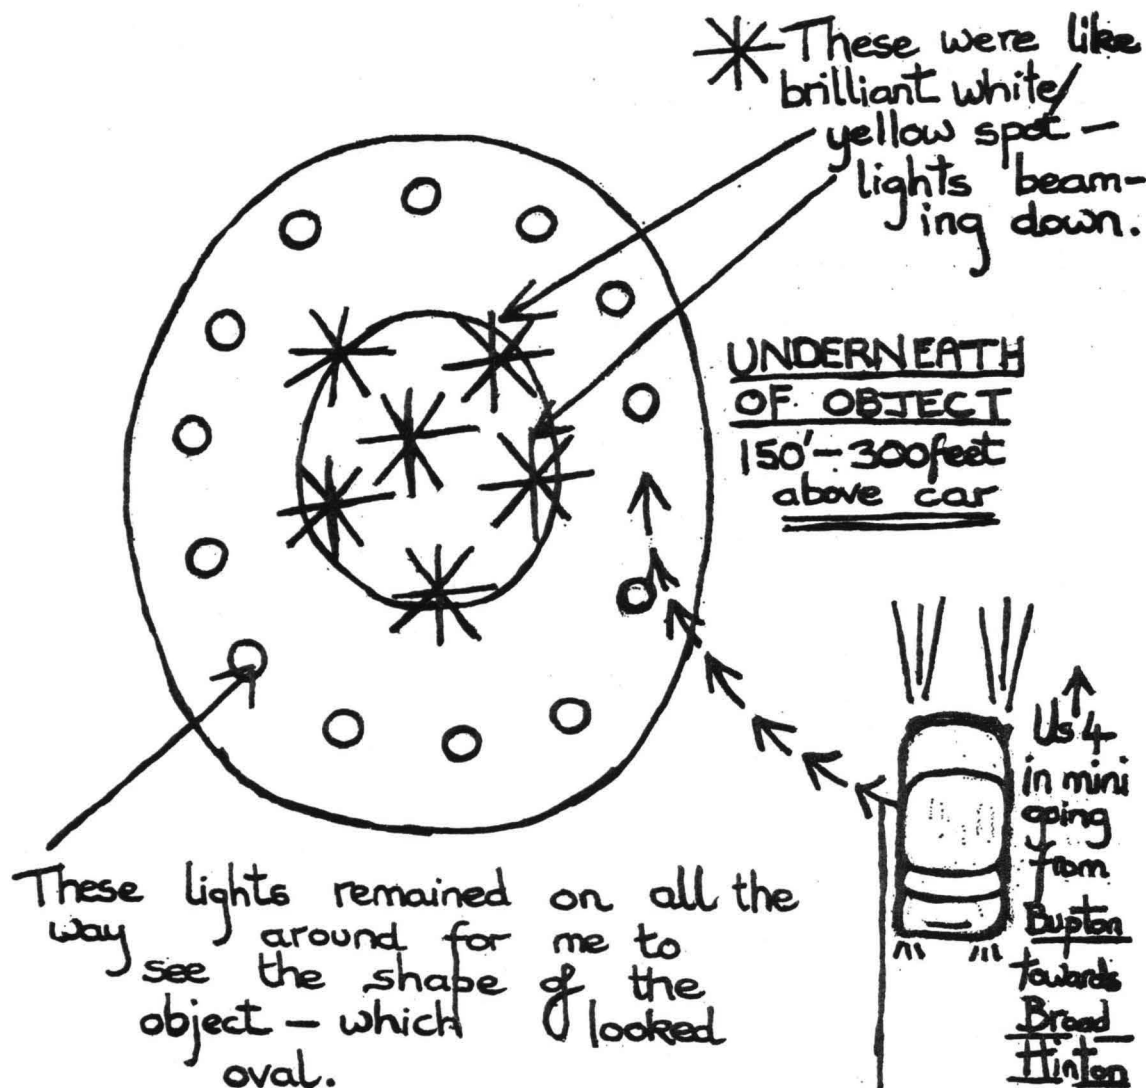 These were like
brilliant white/
yellow spot-
lights beam-
ing down.
UNDERNEATH
OF OBJECT
150'-300feet
above car
Us 4
in mini
going
from
Bupton
towards
Broad
Hinton
These lights remained on all the
way around for me to
see the shape of the
object - which looked
oval.